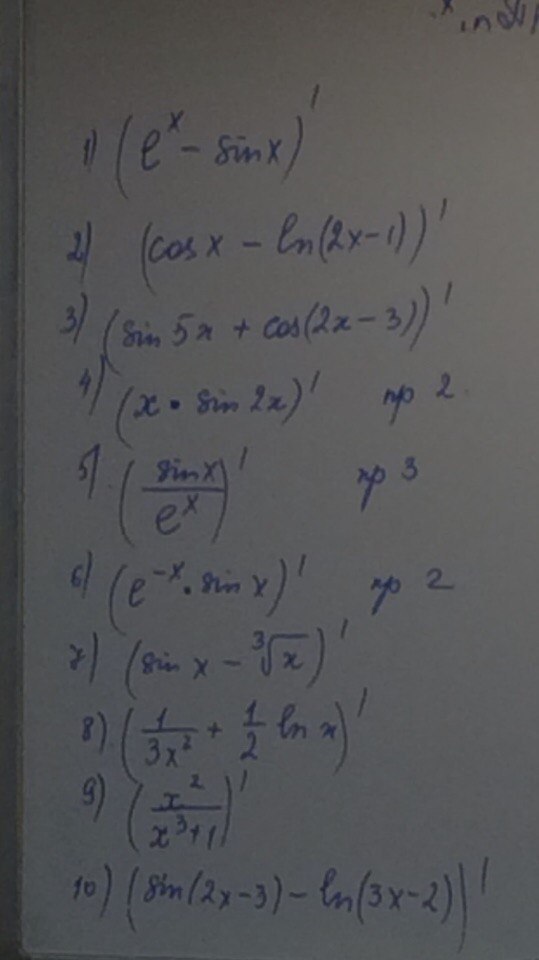 1) (e^x - sin x)'
2) (cos x - ln(2x-1))'
3) (sin 5x + cos(2x-3))'
4) (x · sin 2x)' пр 2
5) (sin x / e^x)' пр 3
6) (e^-x · sin x)' пр 2
7) (sin x - ∛x)'
8) (1/3x² + 1/2 ln x)'
9) (x²/x³+1)'
10) (sin(2x-3) - ln(3x-2))'